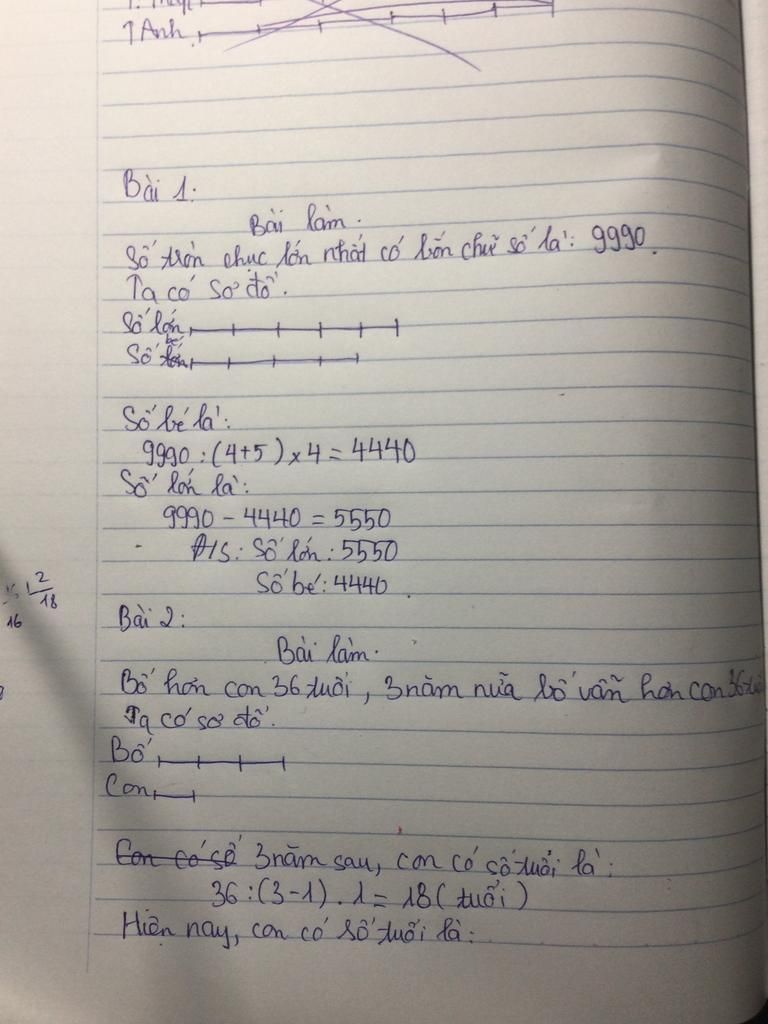 Anh
Bài 1:
Bài làm.
Số tròn chục lớn nhất có bốn chữ số là: 9990.
Ta có sơ đồ.
Số lớn
Số bé
Số bé là:
9990 : (4+5) x 4 = 4440
Số lớn là:
9990 - 4440 = 5550
Đ/S: Số lớn: 5550
Số bé: 4440.
2
18
16
Bài 2:
Bài làm.
Bố hơn con 36 tuổi, 3 năm nữa bố vẫn hơn con 36
Ta có sơ đồ.
Bố
Con
Con có số 3 năm sau, con có số tuổi là:
36 : (3-1) . 1 = 18 (tuổi)
Hiện nay, con có số tuổi là: